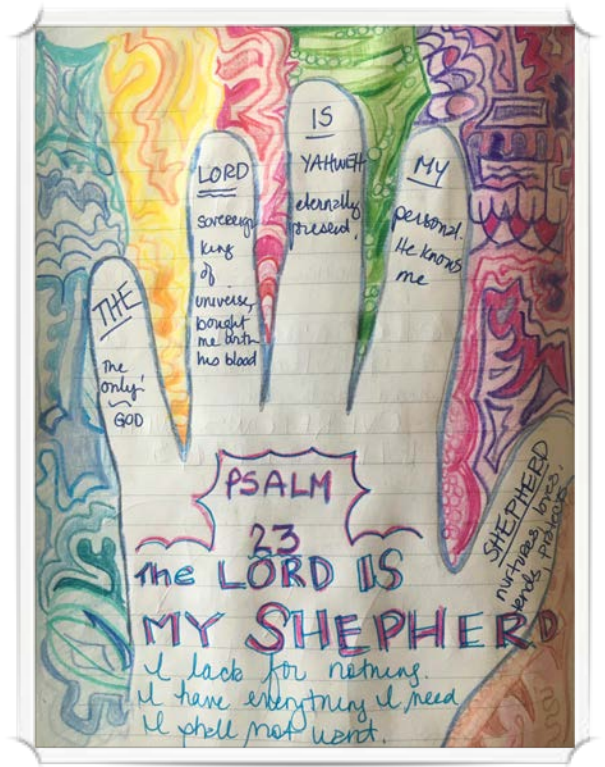 THE
The
only
GOD
LORD
sovereign
king
of
universe,
bought
me with
his blood
IS
YAHWEH
eternally
present.
MY
personal.
He knows
me
SHEPHERD
nurtures, loves,
tends, protects
PSALM
23
The LORD IS
MY SHEPHERD
I lack for nothing.
I have everything I need
I shall not want.